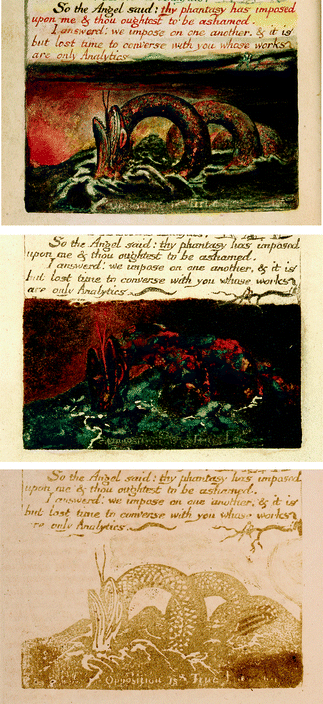 So the Angel said: thy phantasy has imposed
upon me & thou oughtest to be ashamed.
I answerd: we impose on one another, & it is
but lost time to converse with you whose works
are only Analytics
So the Angel said: thy phantasy has imposed
upon me & thou oughtest to be ashamed.
I answerd: we impose on one another, & it is
but lost time to converse with you whose works
are only Analytics
So the Angel said: thy phantasy has imposed
upon me & thou oughtest to be ashamed.
I answerd: we impose on one another, & it is
but lost time to converse with you whose works
are only Analytics
Opposition is True